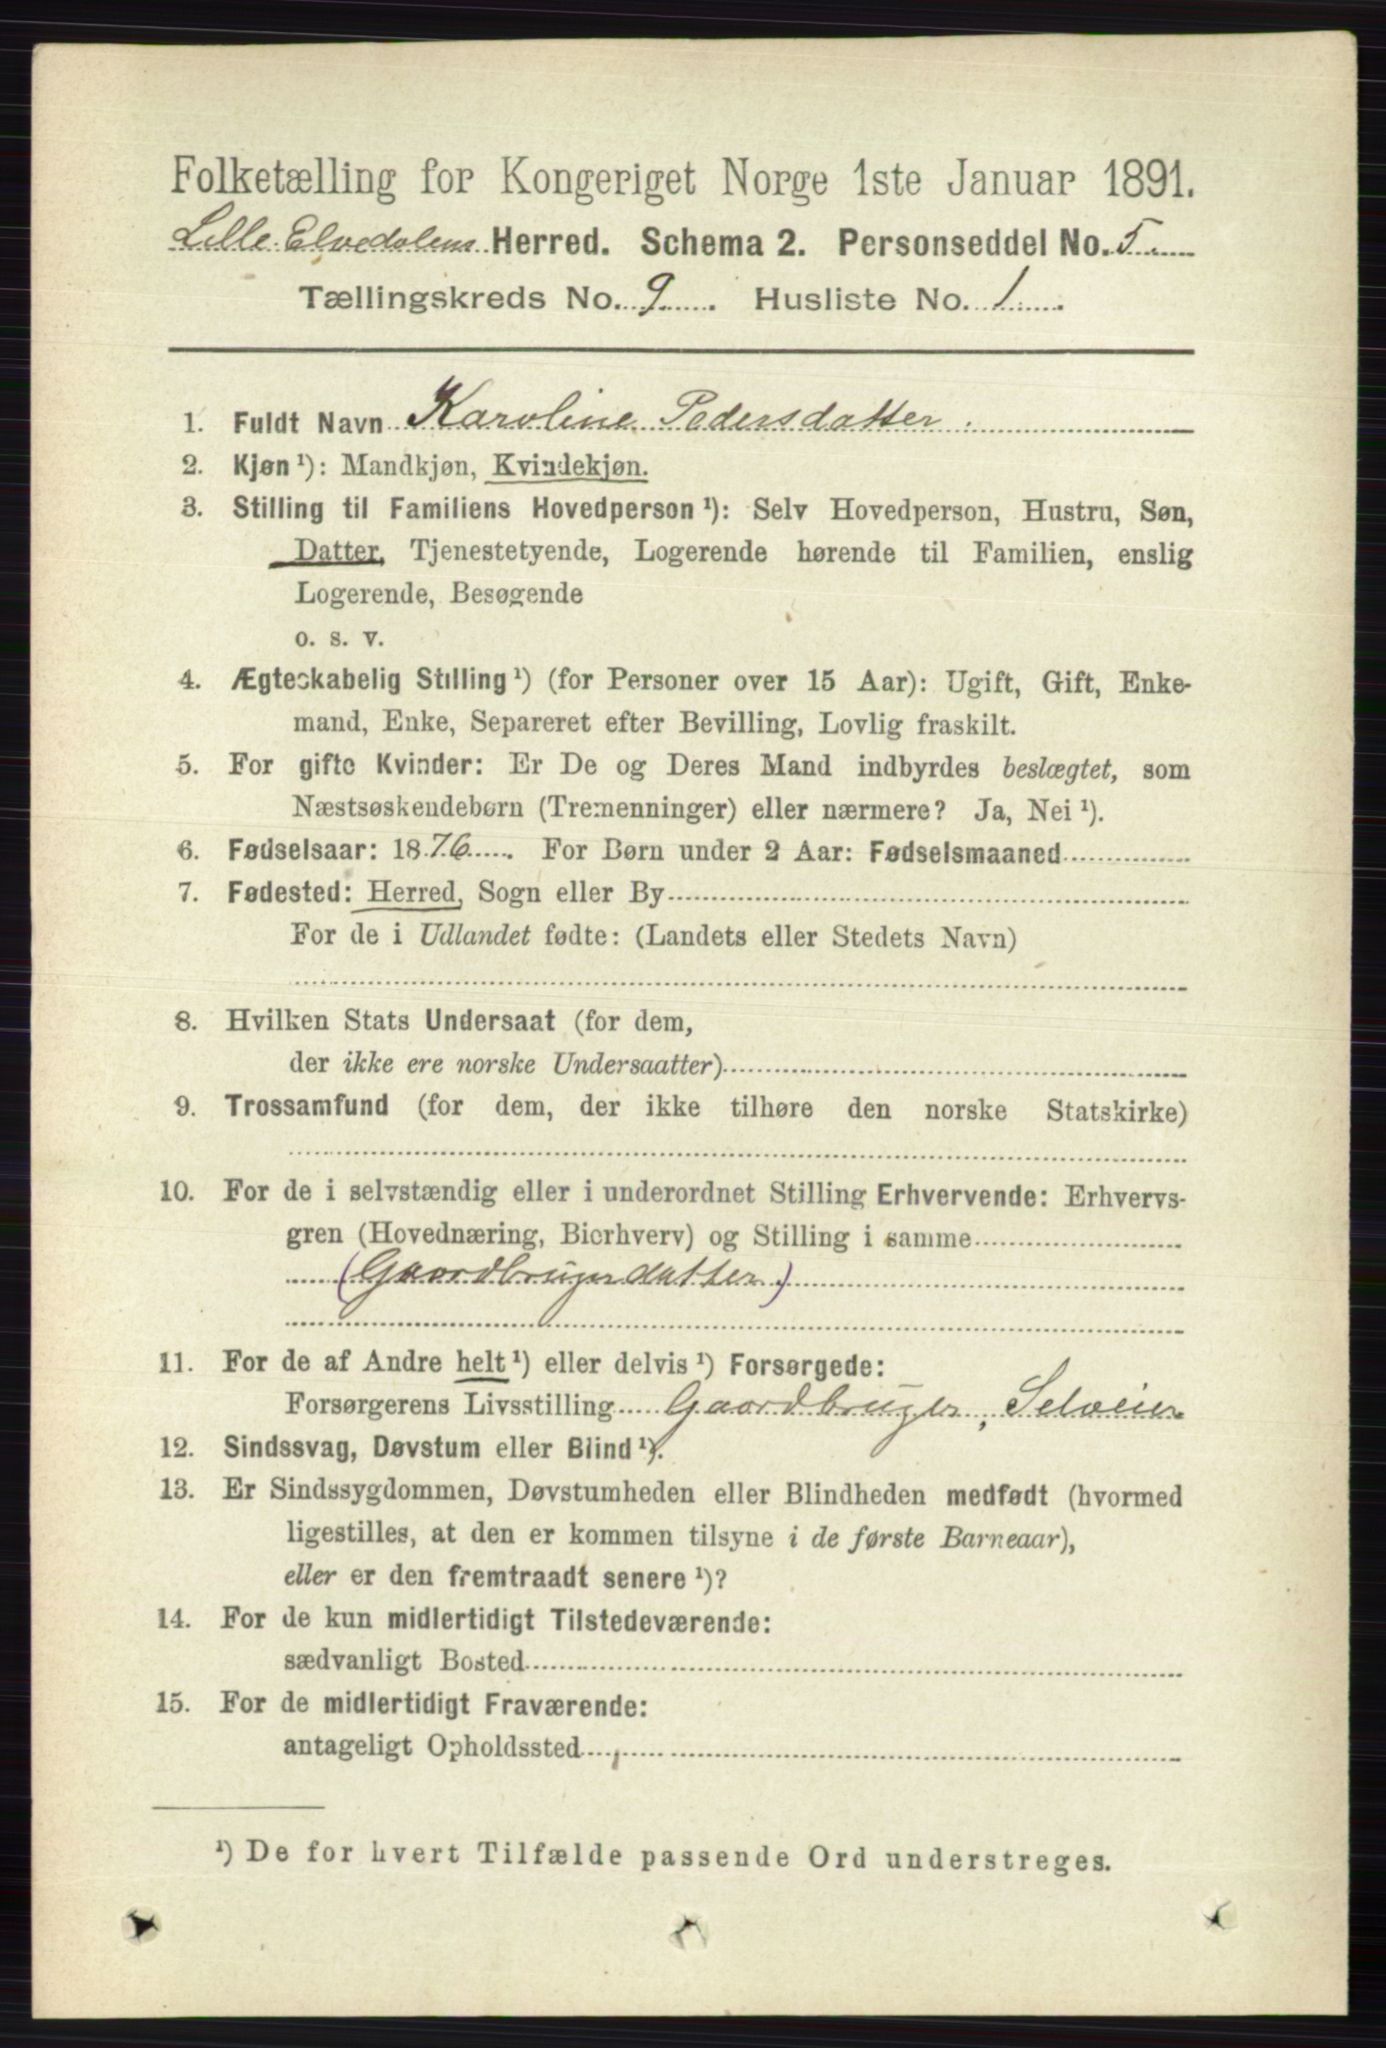 Folketælling for Kongeriget Norge 1ste Januar 1891.
Lille Elvedalens Herred. Schema 2. Personseddel No. 5
Tællingskreds No. 9. Husliste No. 1.
1. Fuldt Navn Karoline Pedersdatter.
2. Kjøn ¹): Mandkjøn, Kvindekjøn.
3. Stilling til Familiens Hovedperson ¹): Selv Hovedperson, Hustru, Søn,
Datter, Tjenestetyende, Logerende hørende til Familien, enslig
Logerende, Besøgende
o. s. v.
4. Ægteskabelig Stilling ¹) (for Personer over 15 Aar): Ugift, Gift, Enke-
mand, Enke, Separeret efter Bevilling, Lovlig fraskilt.
5. For gifte Kvinder: Er De og Deres Mand indbyrdes beslægtet, som
Næstsøskendebørn (Tremenninger) eller nærmere? Ja, Nei ¹).
6. Fødselsaar: 1876. For Børn under 2 Aar: Fødselsmaaned
7. Fødested: Herred, Sogn eller By
For de i Udlandet fødte: (Landets eller Stedets Navn)
8. Hvilken Stats Undersaat (for dem,
der ikke ere norske Undersaatter)
9. Trossamfund (for dem, der ikke tilhøre den norske Statskirke)
10. For de i selvstændig eller i underordnet Stilling Erhvervende: Erhvervs-
gren (Hovednæring, Bierhverv) og Stilling i samme
(Gaardbrugerdatter)
11. For de af Andre helt ¹) eller delvis ¹) Forsørgede:
Forsørgerens Livsstilling Gaardbruger, Selveier
12. Sindssvag, Døvstum eller Blind ¹).
13. Er Sindssygdommen, Døvstumheden eller Blindheden medfødt (hvormed
ligestilles, at den er kommen tilsyne i de første Barneaar),
eller er den fremtraadt senere ¹)?
14. For de kun midlertidigt Tilstedeværende:
sædvanligt Bosted
15. For de midlertidigt Fraværende:
antageligt Opholdssted
¹) De for hvert Tilfælde passende Ord understreges.